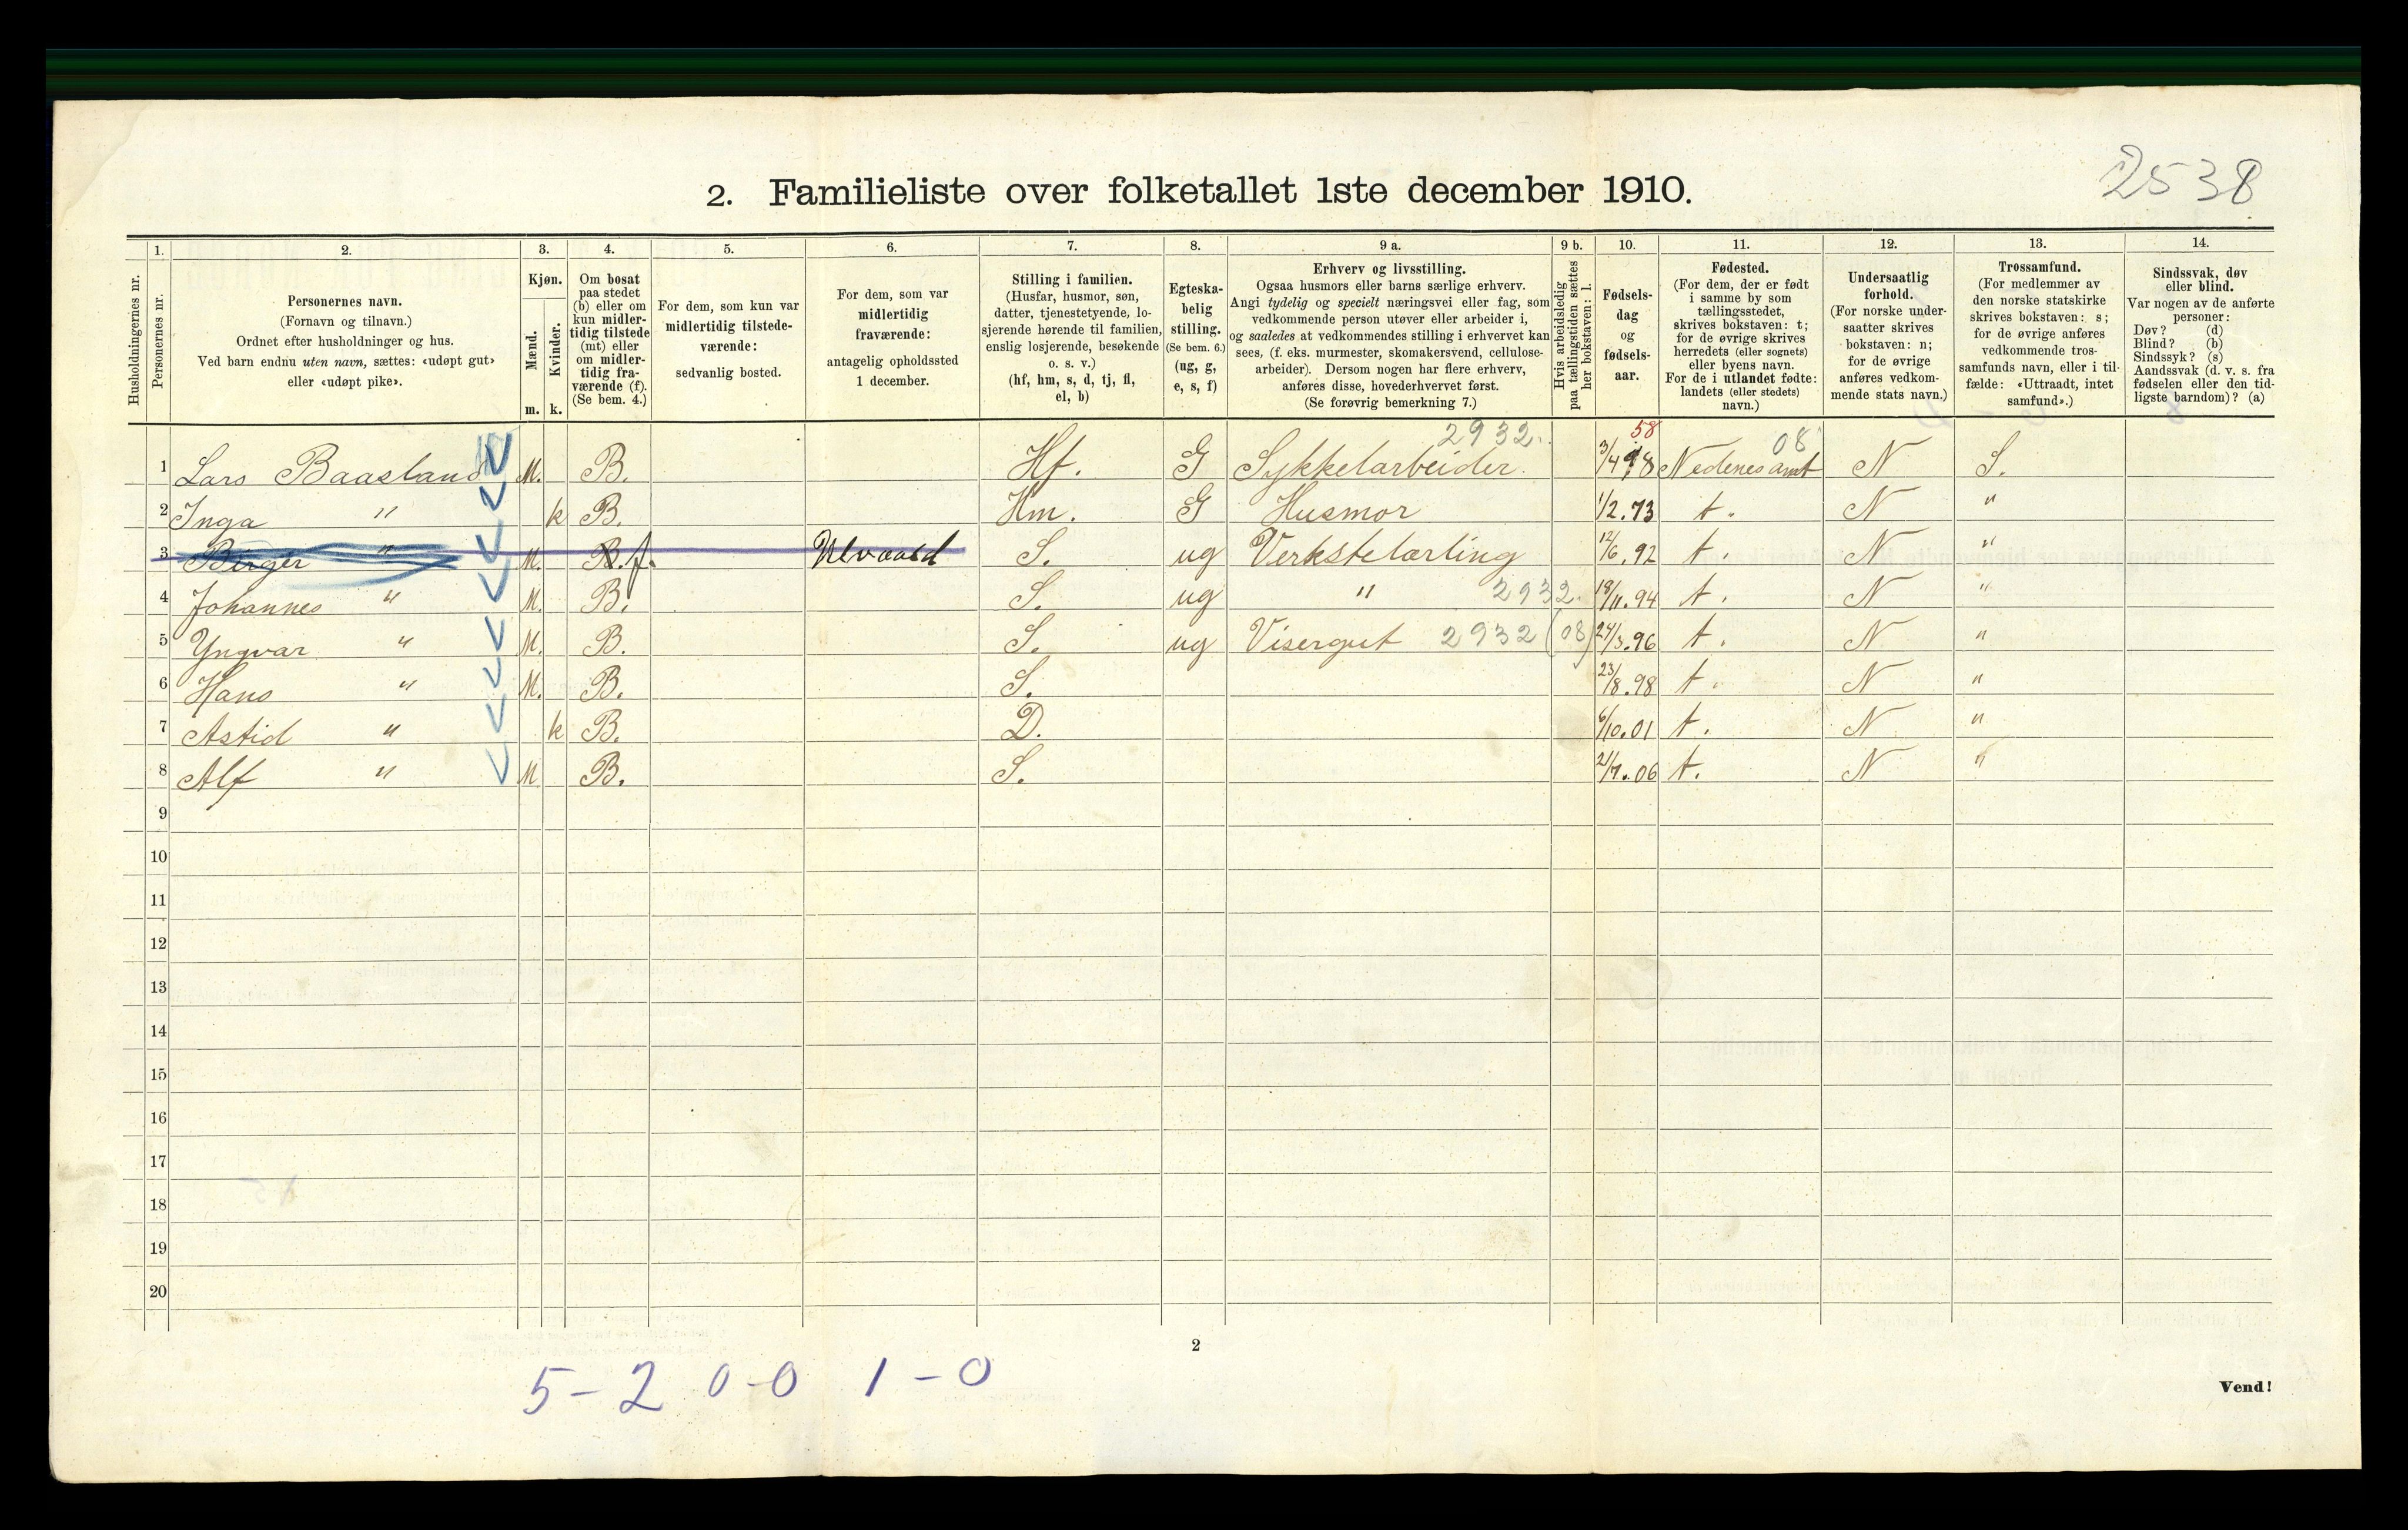 2538
2. Familieliste over folketallet 1ste december 1910.
Husholdningernes nr.
1. Personernes nr.
2. Personernes navn. (Fornavn og tilnavn.) Ordnet efter husholdninger og hus. Ved barn endnu uten navn, sættes: «udøpt gut» eller «udøpt pike».
3. Kjøn. Mænd. m. Kvinder. k.
4. Om bosat paa stedet (b) eller om kun midlertidig tilstede (mt) eller om midlertidig fraværende (f). (Se bem. 4.)
5. For dem, som kun var midlertidig tilstedeværende: sedvanlig bosted.
6. For dem, som var midlertidig fraværende: antagelig opholdssted 1 december.
7. Stilling i familien. (Husfar, husmor, søn, datter, tjenestetyende, losjerende hørende til familien, enslig losjerende, besøkende o. s. v.) (hf, hm, s, d, tj, fl, el, b)
8. Egteskabelig stilling. (Se bem. 6.) (ug, g, e, s, f)
9 a. Erhverv og livsstilling. Ogsaa husmors eller barns særlige erhverv. Angi tydelig og specielt næringsvei eller fag, som vedkommende person utøver eller arbeider i, og saaledes at vedkommendes stilling i erhvervet kan sees, (f. eks. murmester, skomakersvend, cellulosearbeider). Dersom nogen har flere erhverv, anføres disse, hovederhvervet først. (Se forøvrig bemerkning 7.)
9 b. Hvis arbeidsledig paa tællingstiden sættes her bokstaven: l.
10. Fødselsdag og fødselsaar.
11. Fødested. (For dem, der er født i samme by som tællingsstedet, skrives bokstaven: t; for de øvrige skrives herredets (eller sognets) eller byens navn. For de i utlandet fødte: landets (eller stedets) navn.)
12. Undersaatlig forhold. (For norske undersaatter skrives bokstaven: n; for de øvrige anføres vedkommende stats navn.)
13. Trossamfund. (For medlemmer av den norske statskirke skrives bokstaven: s; for de øvrige anføres vedkommende trossamfunds navn, eller i tilfælde: «Uttraadt, intet samfund».)
14. Sindssvak, døv eller blind. Var nogen av de anførte personer: Døv? (d) Blind? (b) Sindssyk? (s) Aandssvak (d. v. s. fra fødselen eller den tidligste barndom)? (a)
2932. 58 08
1 Lars Baasland M. B. Hf. G Sykkelarbeider. 3/4 Nedenes amt N S.
2 Inga " k B. Hm. G Husmor 1/2.73 t. N "
3 Birger " M. B. f. S. ug Verkstelærling 12/6.92 t. N "
4 Johannes " M. B. S. ug " 2932. 18/11.94 t. N "
5 Yngvar " M. B. S. ug Visergut 2932 (08) 24/3.96 t. N "
6 Hans " M. B. S. 23/8.98 t. N "
7 Astid " k B. D. 6/10.01 t. N "
8 Alf " M B. S. 21/7.06 t. N "
9
10
11
12
13
14
15
16
17
18
19
20
2
5-2 0-0 1-0
Vend!